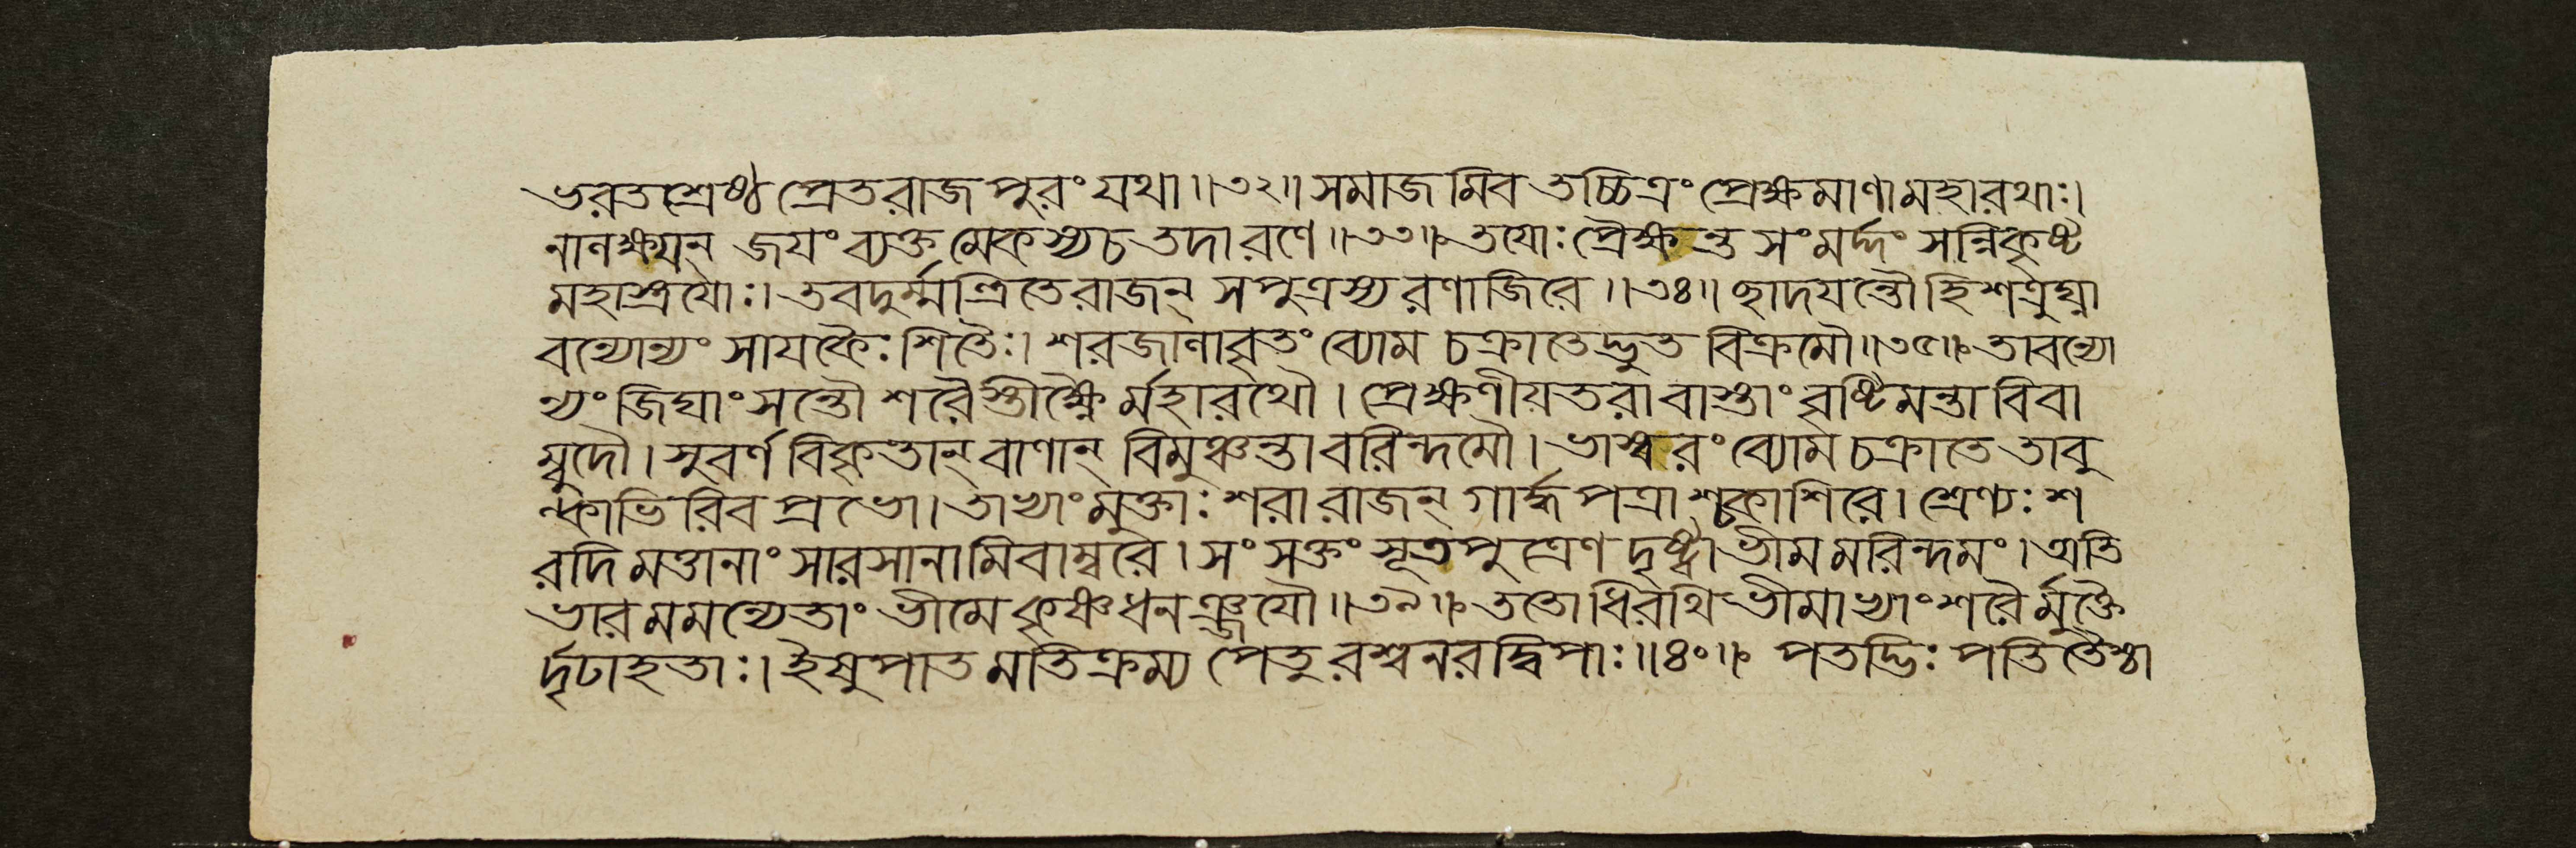 ভরতশ্রেষ্ঠ প্রেতরাজপুরং যথা॥৩২॥ সমাজমিব তচ্চিত্রং প্রেক্ষমাণা মহারথাঃ।
নানক্ষয়ন্ জয়ং ব্যক্তমেকস্য চ তদা রণে॥৩৩॥ তয়োঃ প্রৈক্ষন্ত সংমর্দ্দং সন্নিকৃষ্ট
মহাস্ত্রয়োঃ। তব দুর্ম্মন্ত্রিতে রাজন্ সপুত্রস্য রণাজিরে॥৩৪॥ ছাদয়ন্তৌ হি শত্রুঘ্না
বন্যোন্যং সায়কৈঃ শিতৈঃ। শরজালাবৃতং ব্যোম চক্রাতেদ্ভুত বিক্রমৌ॥৩৫॥ তাবন্যো
ন্যং জিঘাংসন্তৌ শরৈস্তীক্ষ্ণৈর্মহারথৌ। প্রেক্ষণীয়তরাবাস্তাং বৃষ্টিমন্তাবিবা
ম্বুদৌ। সুবর্ণবিকৃতান্ বাণান্ বিমুঞ্চন্তাবরিন্দমৌ। ভাস্বরং ব্যোম চক্রাতে তাবু
ল্কাভিরিব প্রভো। তাভ্যাং মুক্তাঃ শরা রাজন্ গার্দ্ধপত্রাশ্চকাশিরে। শ্রেণ্যঃ শ
রদি মত্তানাং সারসানামিবাম্বরে। সংসক্তং সূতপুত্রেণ দৃষ্ট্বা ভীমমরিন্দমং। অতি
ভারমমন্যেতাং ভীমে কৃষ্ণধনঞ্জয়ৌ॥৩৯॥ ততোধিরথিভীমাভ্যাং শরৈর্মুক্তৈ
র্দৃঢাহতাঃ। ইষুপাতমতিক্রম্য পেতুরশ্বনরদ্বিপাঃ॥৪০॥ পতদ্ভিঃ পতিতৈশ্চা